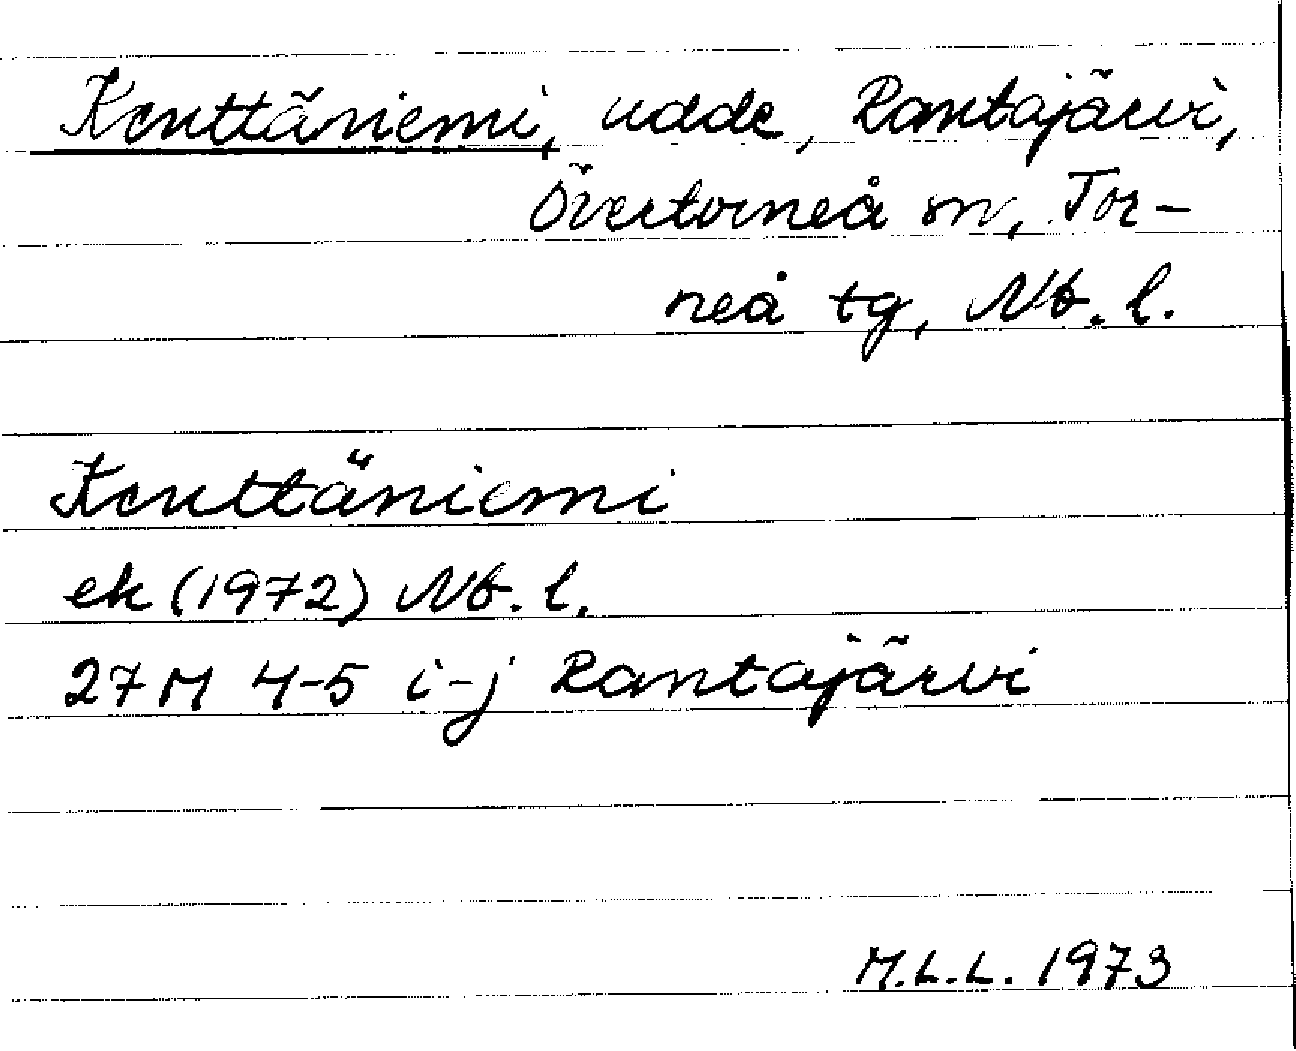 Kenttäniemi, udde, Rantajärvi,
Övertorneå sn, Tor-
neå tg, Nb. l.
Kenttäniemi
ek (1972) Nb. l.
27 M 4-5 i-j Rantajärvi
M.L.L. 1973